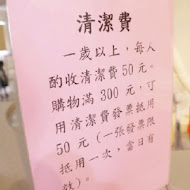 清潔費
一歲以上,每人
酌收清潔費50元。
購物滿300元,可
用清潔費發票抵用
50元(一張發票限
抵用一次,當日有
效)。